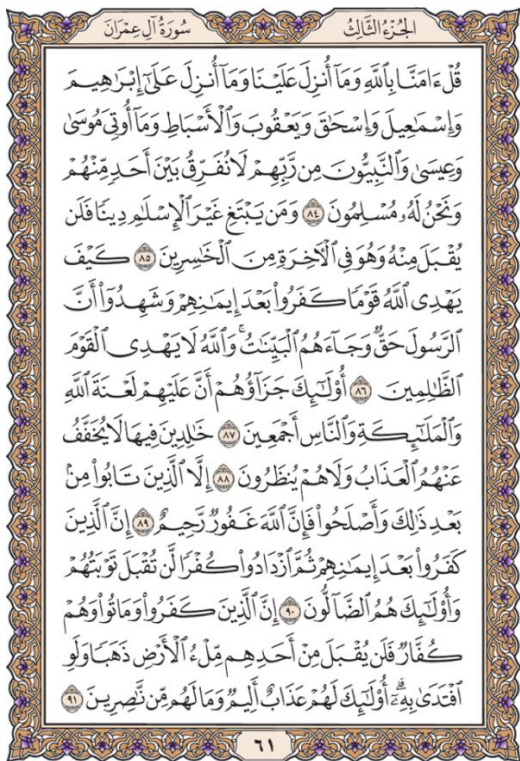 سُورَةُ آلِ عِمْرَانَ
الجُزْءُ الثَّالِثُ
قُلْ ءَامَنَّا بِٱللَّهِ وَمَآ أُنزِلَ عَلَيْنَا وَمَآ أُنزِلَ عَلَىٰٓ إِبْرَٰهِيمَ
وَإِسْمَٰعِيلَ وَإِسْحَٰقَ وَيَعْقُوبَ وَٱلْأَسْبَاطِ وَمَآ أُوتِيَ مُوسَىٰ
وَعِيسَىٰ وَٱلنَّبِيُّونَ مِن رَّبِّهِمْ لَا نُفَرِّقُ بَيْنَ أَحَدٍ مِّنْهُمْ
وَنَحْنُ لَهُۥ مُسْلِمُونَ ٨٤ وَمَن يَبْتَغِ غَيْرَ ٱلْإِسْلَٰمِ دِينًا فَلَن
يُقْبَلَ مِنْهُ وَهُوَ فِي ٱلْأٓخِرَةِ مِنَ ٱلْخَٰسِرِينَ ٨٥ كَيْفَ
يَهْدِي ٱللَّهُ قَوْمًا كَفَرُوا۟ بَعْدَ إِيمَٰنِهِمْ وَشَهِدُوٓا۟ أَنَّ
ٱلرَّسُولَ حَقٌّ وَجَآءَهُمُ ٱلْبَيِّنَٰتُ ۚ وَٱللَّهُ لَا يَهْدِي ٱلْقَوْمَ
ٱلظَّٰلِمِينَ ٨٦ أُو۟لَٰٓئِكَ جَزَآؤُهُمْ أَنَّ عَلَيْهِمْ لَعْنَةَ ٱللَّهِ
وَٱلْمَلَٰٓئِكَةِ وَٱلنَّاسِ أَجْمَعِينَ ٨٧ خَٰلِدِينَ فِيهَا لَا يُخَفَّفُ
عَنْهُمُ ٱلْعَذَابُ وَلَا هُمْ يُنظَرُونَ ٨٨ إِلَّا ٱلَّذِينَ تَابُوا۟ مِنۢ
بَعْدِ ذَٰلِكَ وَأَصْلَحُوا۟ فَإِنَّ ٱللَّهَ غَفُورٌ رَّحِيمٌ ٨٩ إِنَّ ٱلَّذِينَ
كَفَرُوا۟ بَعْدَ إِيمَٰنِهِمْ ثُمَّ ٱزْدَادُوا۟ كُفْرًا لَّن تُقْبَلَ تَوْبَتُهُمْ
وَأُو۟لَٰٓئِكَ هُمُ ٱلضَّآلُّونَ ٩٠ إِنَّ ٱلَّذِينَ كَفَرُوا۟ وَمَاتُوا۟ وَهُمْ
كُفَّارٌ فَلَن يُقْبَلَ مِنْ أَحَدِهِم مِّلْءُ ٱلْأَرْضِ ذَهَبًا وَلَوِ
ٱفْتَدَىٰ بِهِۦٓ ۗ أُو۟لَٰٓئِكَ لَهُمْ عَذَابٌ أَلِيمٌ وَمَا لَهُم مِّن نَّٰصِرِينَ ٩١
٦١